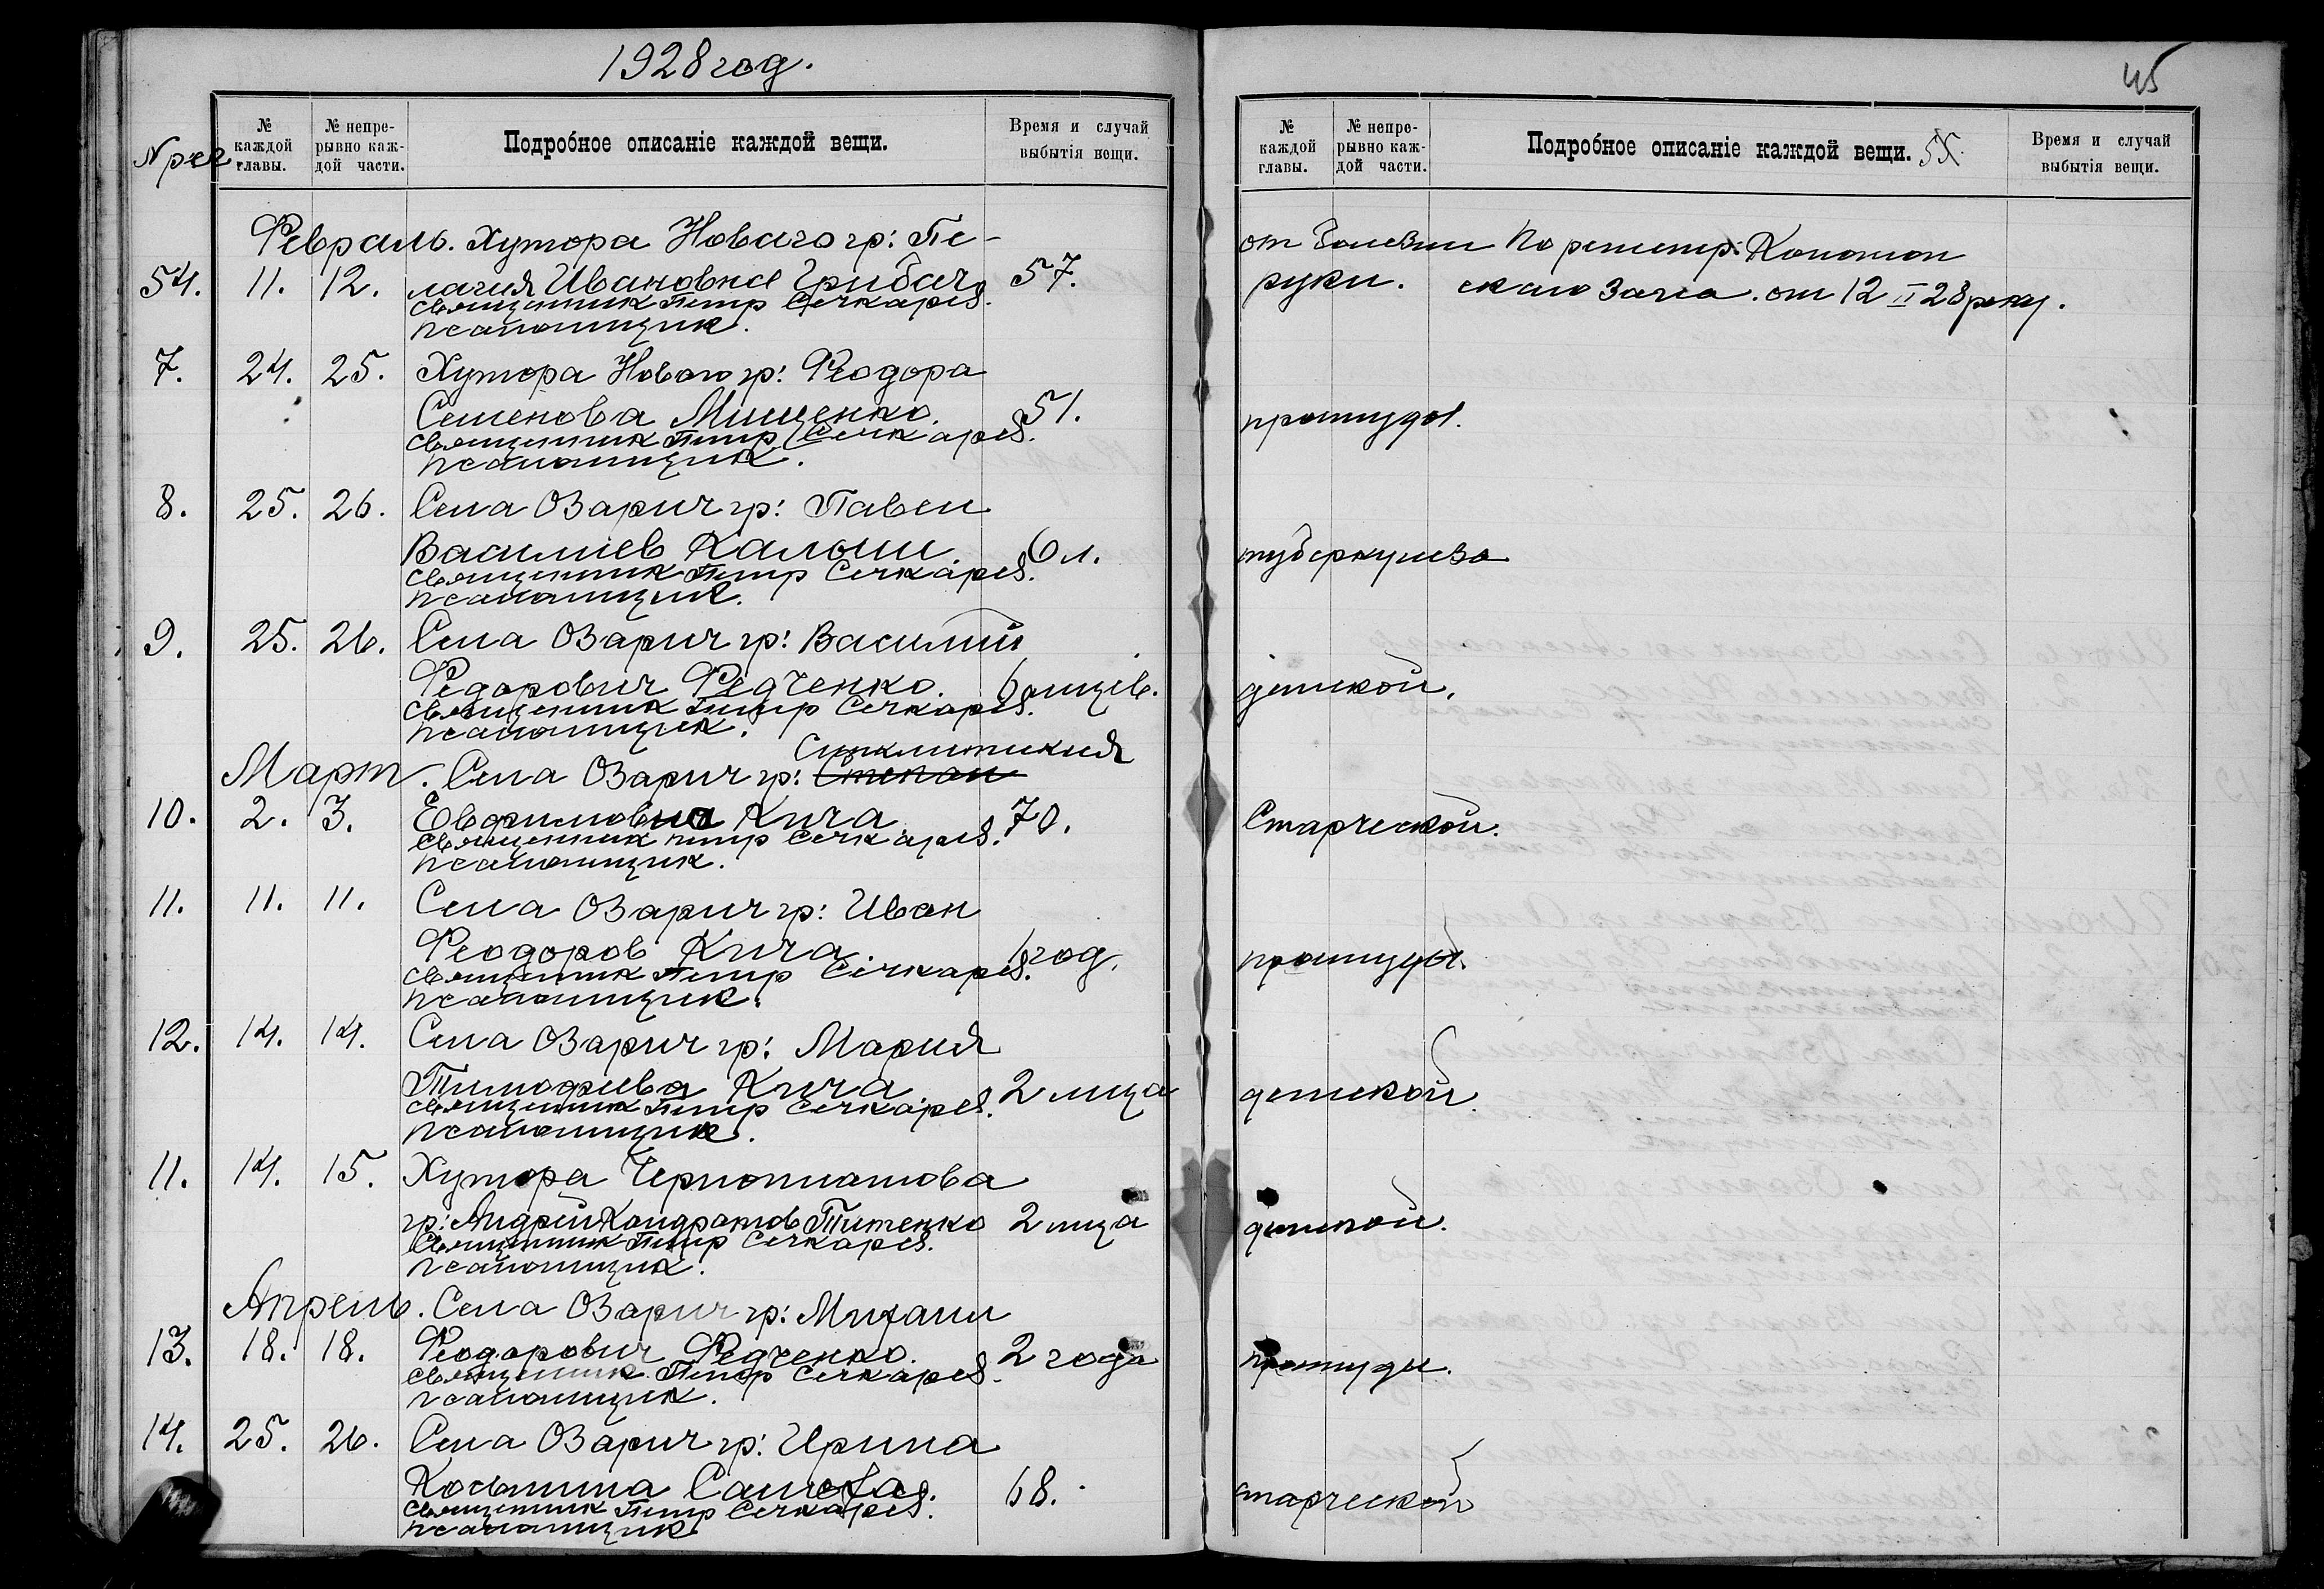 1928 год.
45
№ рег
№ каждой главы.
№ непрерывно каждой части.
Подробное описаніе каждой вещи.
Время и случай выбытія вещи.
№ каждой главы.
№ непрерывно каждой части.
Подробное описаніе каждой вещи.
55
Время и случай выбытія вещи.
Февраль. Хутора Новаго гр: Пе-
54. 11. 12. лагия Ивановна Грибач 57.
священник Петр Сечкарев.
псаломщик.
от болезни
руки.
По регистр: Конотоп
ского Загса. от 12 II 28 року.
7. 24. 25. Хутора Нового гр: Феодора
Семенова Мищенко. 51. простуды.
священник Петр Сечкарев.
псаломщик.
8. 25. 26. Села Озарич гр: Павел
Василиев Калош 6 л. туберкулеза
священник Петр Сечкарев.
псаломщик.
9. 25. 26. Села Озарич гр: Василий
Федорович Федченко. 6 мцев. детской.
священник Петр Сечкарев.
псаломщик.
Синклитикия
Март. Села Озарич гр: Степан
10. 2. 3. Евфимовна Кича 70. Старческой.
священник петр Сечкарев.
псаломщик.
11. 11. 11. Села Озарич гр: Иван
Феодоров Кича. 1 год. простуды.
священник Петр Сечкарев.
псаломщик.
12. 14. 14. Села Озарич гр: Мария
Тимофиева Кича 2 мца детской.
священник Петр Сечкарев.
псаломщик.
11. 14. 15. Хутора Черноплатова
гр: Андрей Кондратов Титенко 2 мца детской.
Священник Петр Сечкарев.
псаломщик.
Апрель. Села Озарич гр: Михаил
13. 18. 18. Феодорович Федченко. 2 года простуды.
священник Петр Сечкарев.
псаломщик.
14. 25. 26. Села Озарич гр: Ирина
Косьмина 68. старческой
священник Петр Сечкарев.
псаломщик